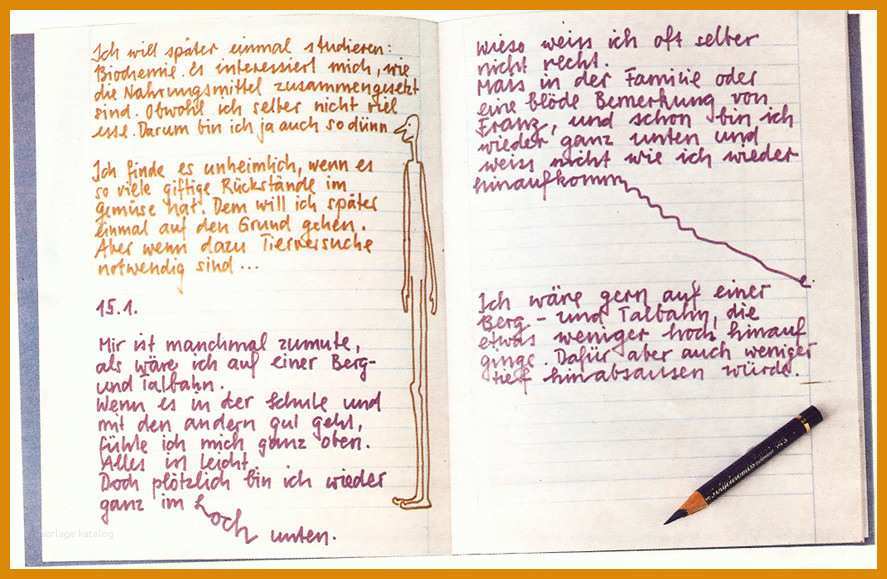 Ich will später einmal studieren:
Biochemie. Es interessiert mich, wie
die Nahrungsmittel zusammengesetzt
sind. Obwohl ich selber nicht viel
esse. Darum bin ich ja auch so dünn
Ich finde es unheimlich, wenn es
so viele giftige Rückstände im
gemüse hat. Dem will ich später
einmal auf den Grund gehen.
Aber wenn dazu Tierversuche
notwendig sind ...
15.1.
Mir ist manchmal zumute,
als wäre ich auf einer Berg-
und Talbahn.
Wenn es in der Schule und
mit den andern gut geht,
fühle ich mich ganz oben.
Alles in leicht.
Doch plötzlich bin ich wieder
ganz im Loch
unten.
Wieso weiss ich oft selber
nicht recht.
Mais in der Familie oder
eine blöde Bemerkung von
Franz, und schon bin ich
wieder ganz unten und
weiss nicht wie ich wieder
hinaufkomme
Ich wäre gern auf einer
Berg- und Talbahn, die
etwas weniger hoch hinauf
ginge. Dafür aber auch weniger
tief hinabsausen würde.
vorlage katalog